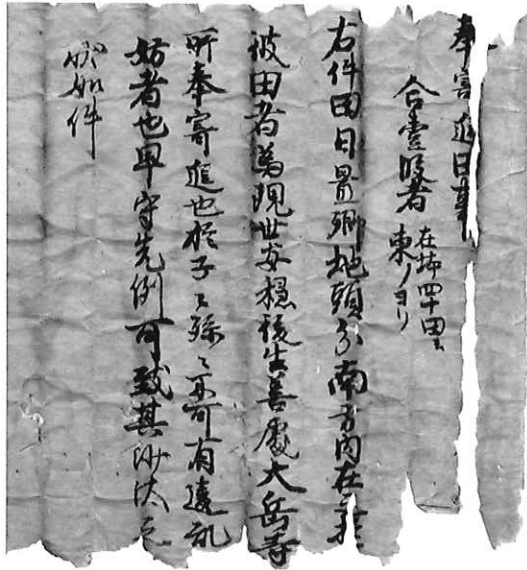 奉寄進田事
合壹段者
在坪四十田
東ノヨリ
右件田日置郷地頭分南方内在
彼田者為現世安穏後生善處大岳寺
所奉寄進也於子々孫々不可有違乱
妨者也早守先例可致其沙汰之
状如件